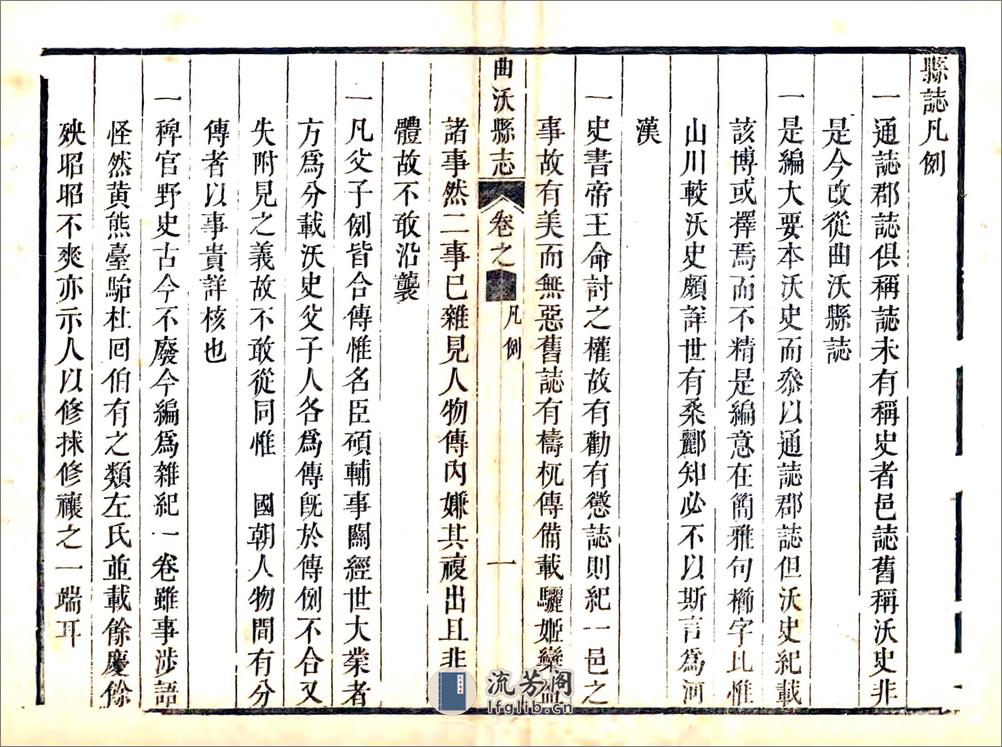 縣誌凡例
一通誌郡誌俱稱誌未有稱史者邑誌舊稱沃史非
是今改從曲沃縣誌
一是編大要本沃史而參以通誌郡誌但沃史紀載
該博或擇焉而不精是編意在簡雅句櫛字比惟
山川較沃史頗詳世有桑酈知必不以斯言爲河
漢
一史書帝王命討之權故有勸有懲誌則紀一邑之
事故有美而無惡舊誌有檮杌傳備載驪姬欒盈
曲沃縣志
卷之
凡例
一
諸事然二事已雜見人物傳內嫌其複出且非
體故不敢沿襲
一凡父子例皆合傳惟名臣碩輔事關經世大業者
方爲分載沃史父子人各爲傳旣於傳例不合又
失附見之義故不敢從同惟 國朝人物間有分
傳者以事貴詳核也
一稗官野史古今不廢今編爲雜紀一卷雖事涉語
怪然黃熊臺駘杜回伯有之類左氏並載餘慶餘
殃昭昭不爽亦示人以修捄修禳之一端耳
流芳阁
lfglib.cn